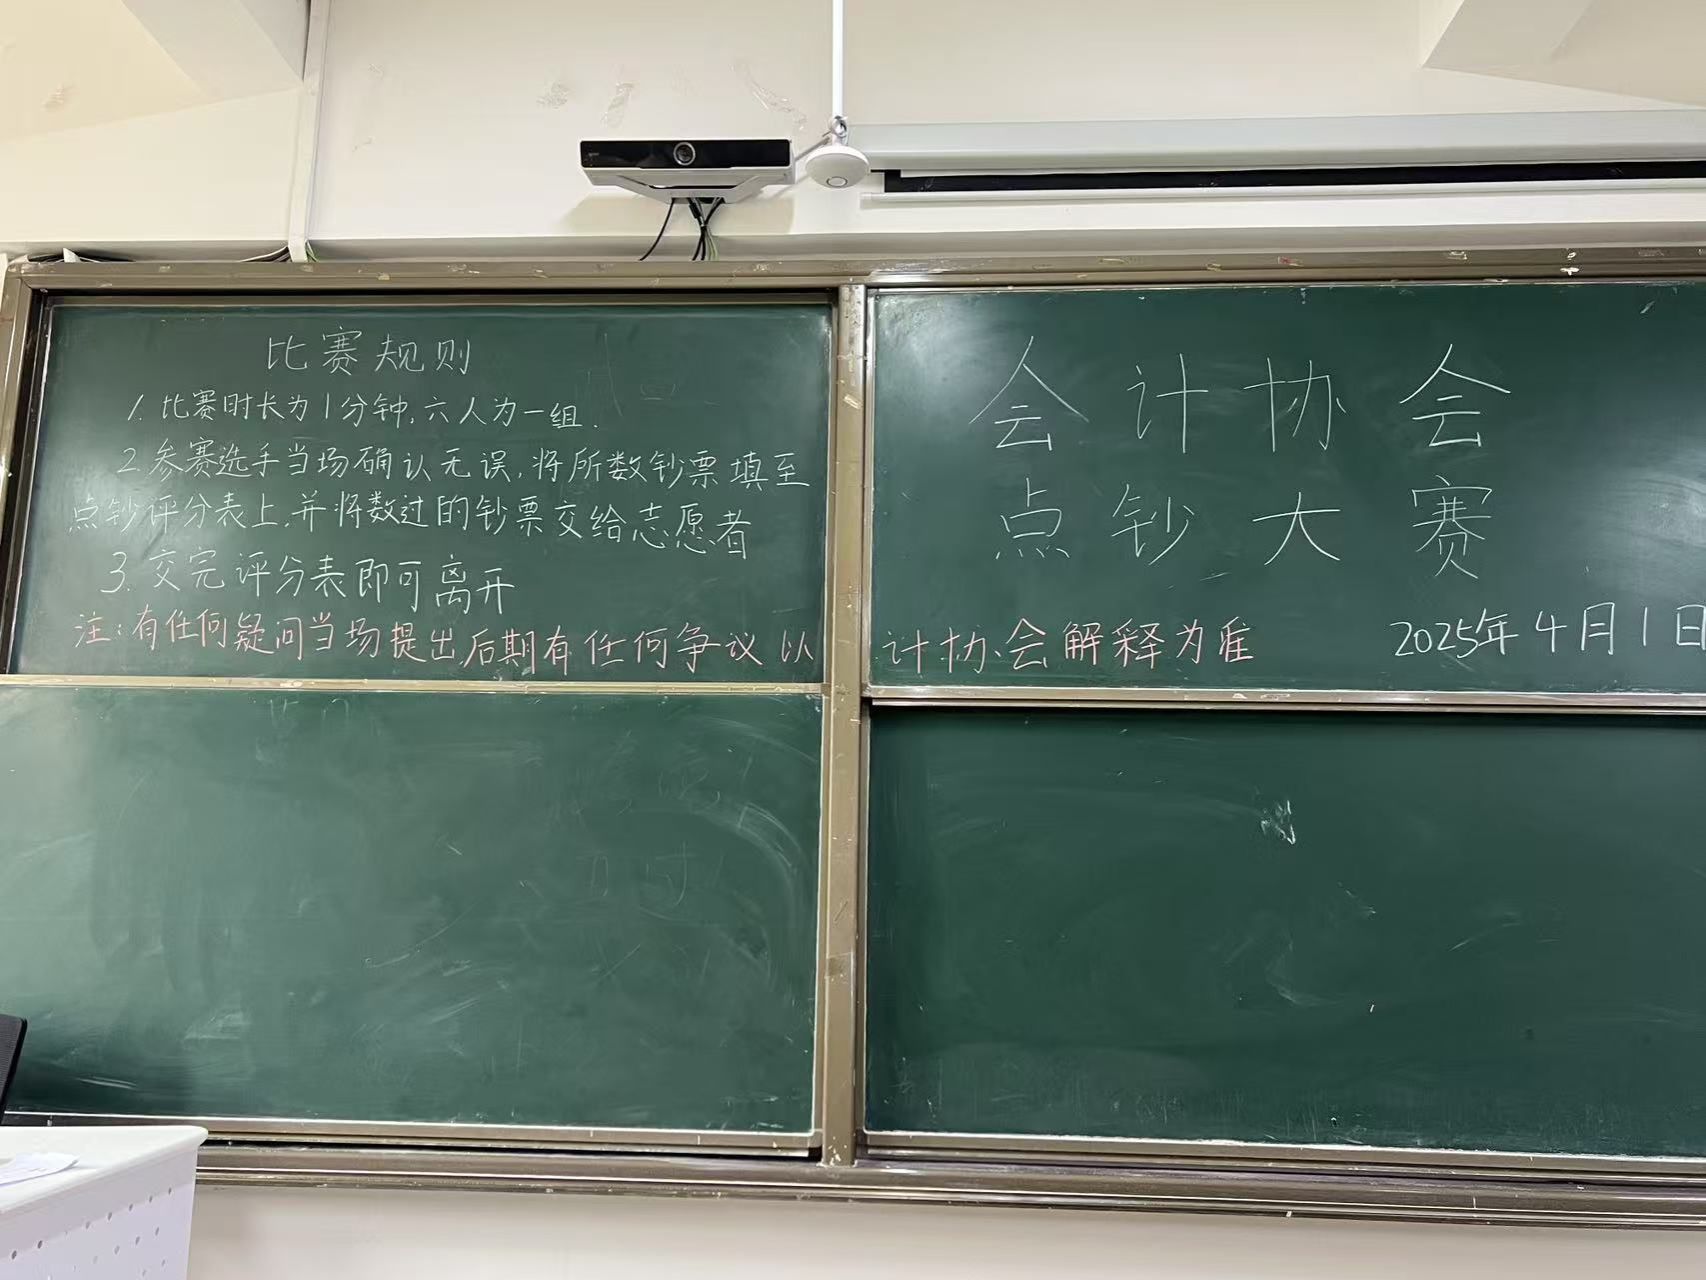 比赛规则
1. 比赛时长为1分钟,六人为一组.
2.参赛选手当场确认无误,将所数钞票填至
点钞评分表上,并将数过的钞票交给志愿者
3.交完评分表即可离开
注:有任何疑问当场提出,后期有任何争议以
会计协会
点钞大赛
计协会解释为准
2025年4月1日